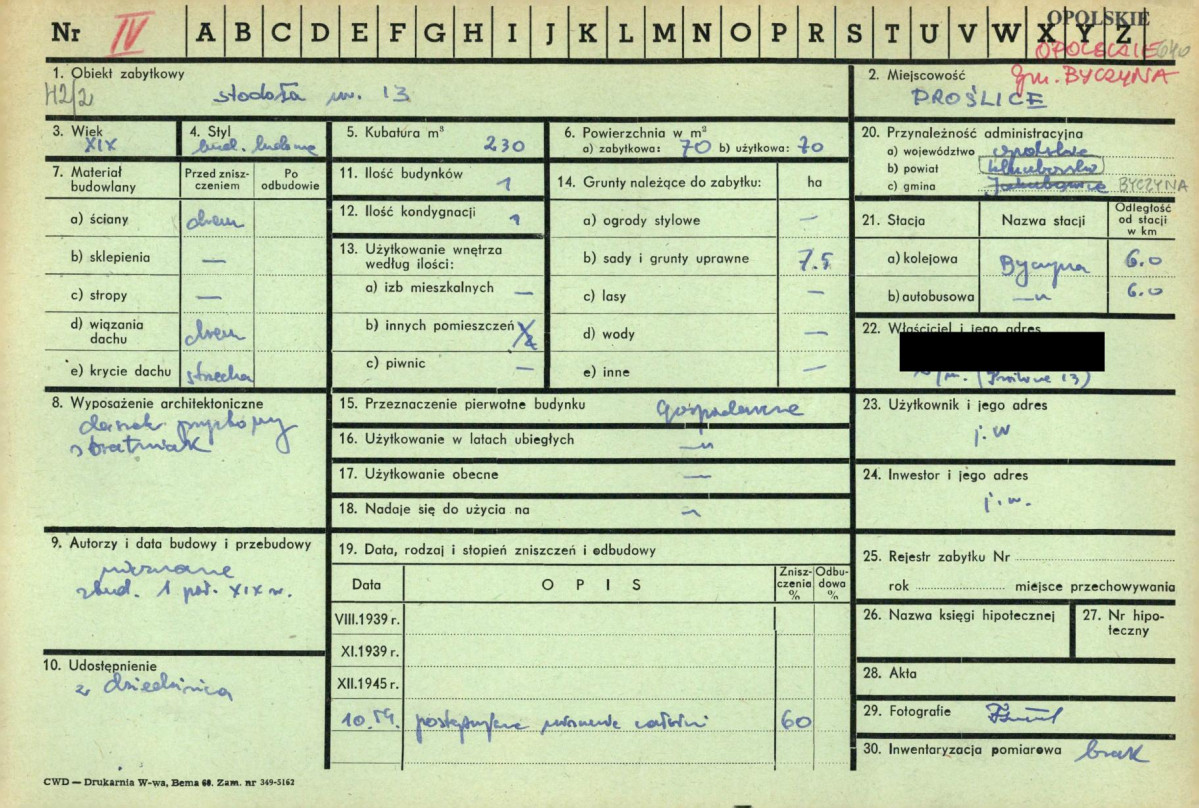 Nr IV A B C D E F G H I J K L M N O P R S T U V W X Y Z
OPOLSKIE
OPOLSKIE 640
gm. BYCZYNA
1. Obiekt zabytkowy
H2/2
stodoła nr. 13
2. Miejscowość
PROŚLICE
3. Wiek
XIX
4. Styl
bud. ludowe
5. Kubatura m³
230
6. Powierzchnia w m²
a) zabytkowa: 70 b) użytkowa: 70
20. Przynależność administracyjna
a) województwo opolskie
b) powiat kluczborski
c) gmina Jakubowice BYCZYNA
7. Materiał budowlany
Przed zniszczeniem
Po odbudowie
a) ściany drewn
b) sklepienia —
c) stropy —
d) wiązania dachu drewn
e) krycie dachu strzecha
11. Ilość budynków 1
12. Ilość kondygnacji 1
13. Użytkowanie wnętrza według ilości:
a) izb mieszkalnych —
b) innych pomieszczeń
c) piwnic —
14. Grunty należące do zabytku: ha
a) ogrody stylowe —
b) sady i grunty uprawne 7.5
c) lasy —
d) wody —
e) inne —
21. Stacja
Nazwa stacji
Odległość od stacji w km
a) kolejowa Byczyna 6.0
b) autobusowa —„ 6.0
22. Właściciel i jego adres
(Proślice 13)
8. Wyposażenie architektoniczne
daszek przyzbowy
15. Przeznaczenie pierwotne budynku gospodarcze
16. Użytkowanie w latach ubiegłych —„
17. Użytkowanie obecne —
18. Nadaje się do użycia na
23. Użytkownik i jego adres
j.w
24. Inwestor i jego adres
j.w.
9. Autorzy i data budowy i przebudowy
nieznane
zbud. 1 poł. XIX w.
19. Data, rodzaj i stopień zniszczeń i odbudowy
Data
O P I S
Zniszczenia %
Odbudowa %
VIII.1939 r.
XI.1939 r.
XII.1945 r.
10.59. postępujące niszczenie całości 60
25. Rejestr zabytku Nr
rok miejsce przechowywania
26. Nazwa księgi hipotecznej
27. Nr hipoteczny
10. Udostępnienie
z dziedzińca
28. Akta
29. Fotografie
30. Inwentaryzacja pomiarowa brak
CWD — Drukarnia W-wa, Bema 60. Zam. nr 349-5162